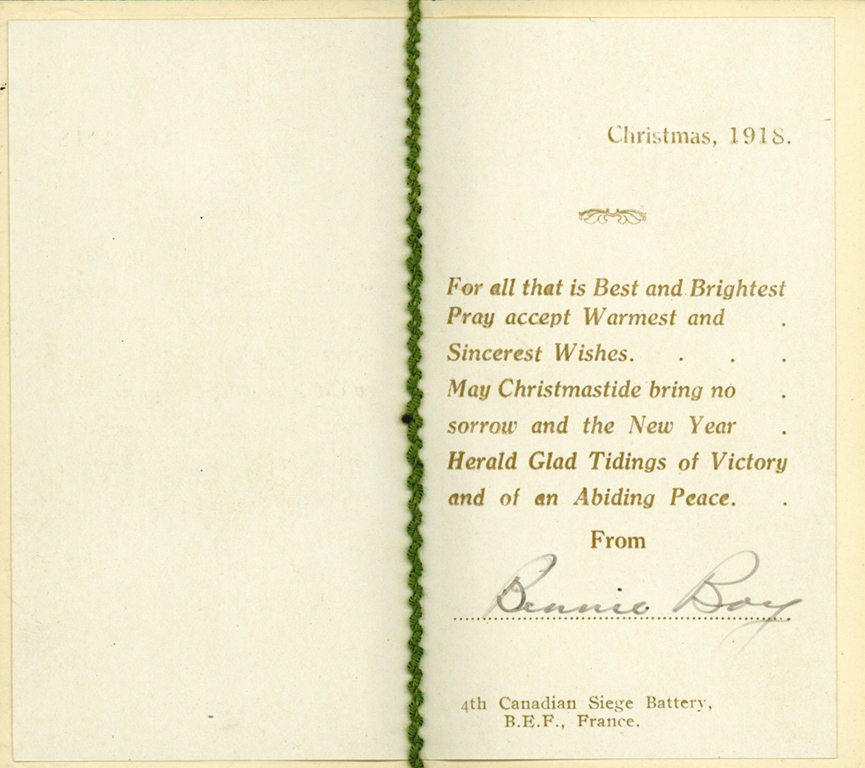 Christmas, 1918.
For all that is Best and Brightest
Pray accept Warmest and .
Sincerest Wishes. . . .
May Christmastide bring no .
sorrow and the New Year .
Herald Glad Tidings of Victory
and of an Abiding Peace. .
From
Bennie Boy
4th Canadian Siege Battery,
B.E.F., France.